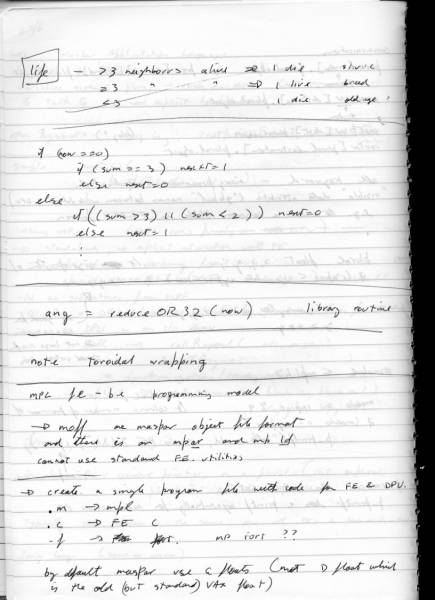 life — >3 neighbours alive => I die starve
=3 " " => I live breed
<3 I die old age
if (now ==0)
if (sum == 3) next=1
else next=0
else
if ((sum > 3) || (sum < 2)) next=0
else next=1
:
any = reduce OR32 (now) library routine
note toroidal wrapping
MPL fe - be programming model
-> moff are maspar object file format
and there is an mpar and mp ld
cannot use standard FE. utilities
-> create a single program file with code for FE & DPU.
.m -> mpl
.c -> FE C
.f -> FE mp fort ??
by default maspar use G floats (not D float which
is the old (but standard) VAX float)